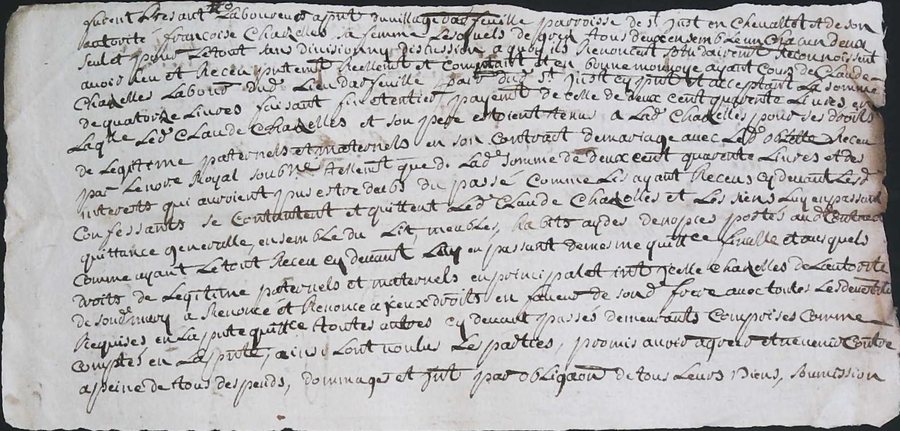 furent presant Laboureur a pnt du village dasfeuille parroisse de st Just en Chevallet et de son
autorite francoise Chazelles sa femme Lesquels de gre tous deux ensemble un chacun deux
seul et pour Le tout sans division ny discussion a quoy ils Renoncent solidairemt Reconnoissent
avoir heu et Receu pntemt Reellemt et comptant et en bonne monnoye ayant Cours de Claude
Chazelles Labour dud Lieu dasfeuille pars dud st Just cy pnt et acceptant La somme
de quatorze Livres faisant payemt de celle de deux cent quarente Livres en
Laqlle Led Claude Chazelles et son pere estoient tenus a Lad Chazelles pour ses droits
de Legitime paternels et maternels en son Contract de mariage avec Led Receu
par Le nore Royal soubne tellemt que de Lad somme de deux cent quarente Livres et des
interests qui auroient pus estre deubs du passé Comme Les ayant Receus cy devant Lesd
Confessants se contantent et quittent Led Claude Chazelles et Les siens Luy en passant
quittance generalle, ensemble du Lit, meubles, habits aud Contract
Comme ayant Le tout Receu cy devant Luy en passant de mesme quittce finalle et ausquels
droits de Legitime paternels et maternels en principal et int Icelle Chazelles de Lautorite
de sond mary a Renoncé et Renonce a Iceux droits en faveur de sond frere avec toutes Les
Requises en La pnte quittce toutes autres cy devant passes demeurants Comprises Comme
Comptes en La pnte, ainsi Lont voulu Les parties, promis avoir agreé et ne venir Contre
a peine de tous despends, dommages et Int par obligaon de tous Leurs biens, soumission